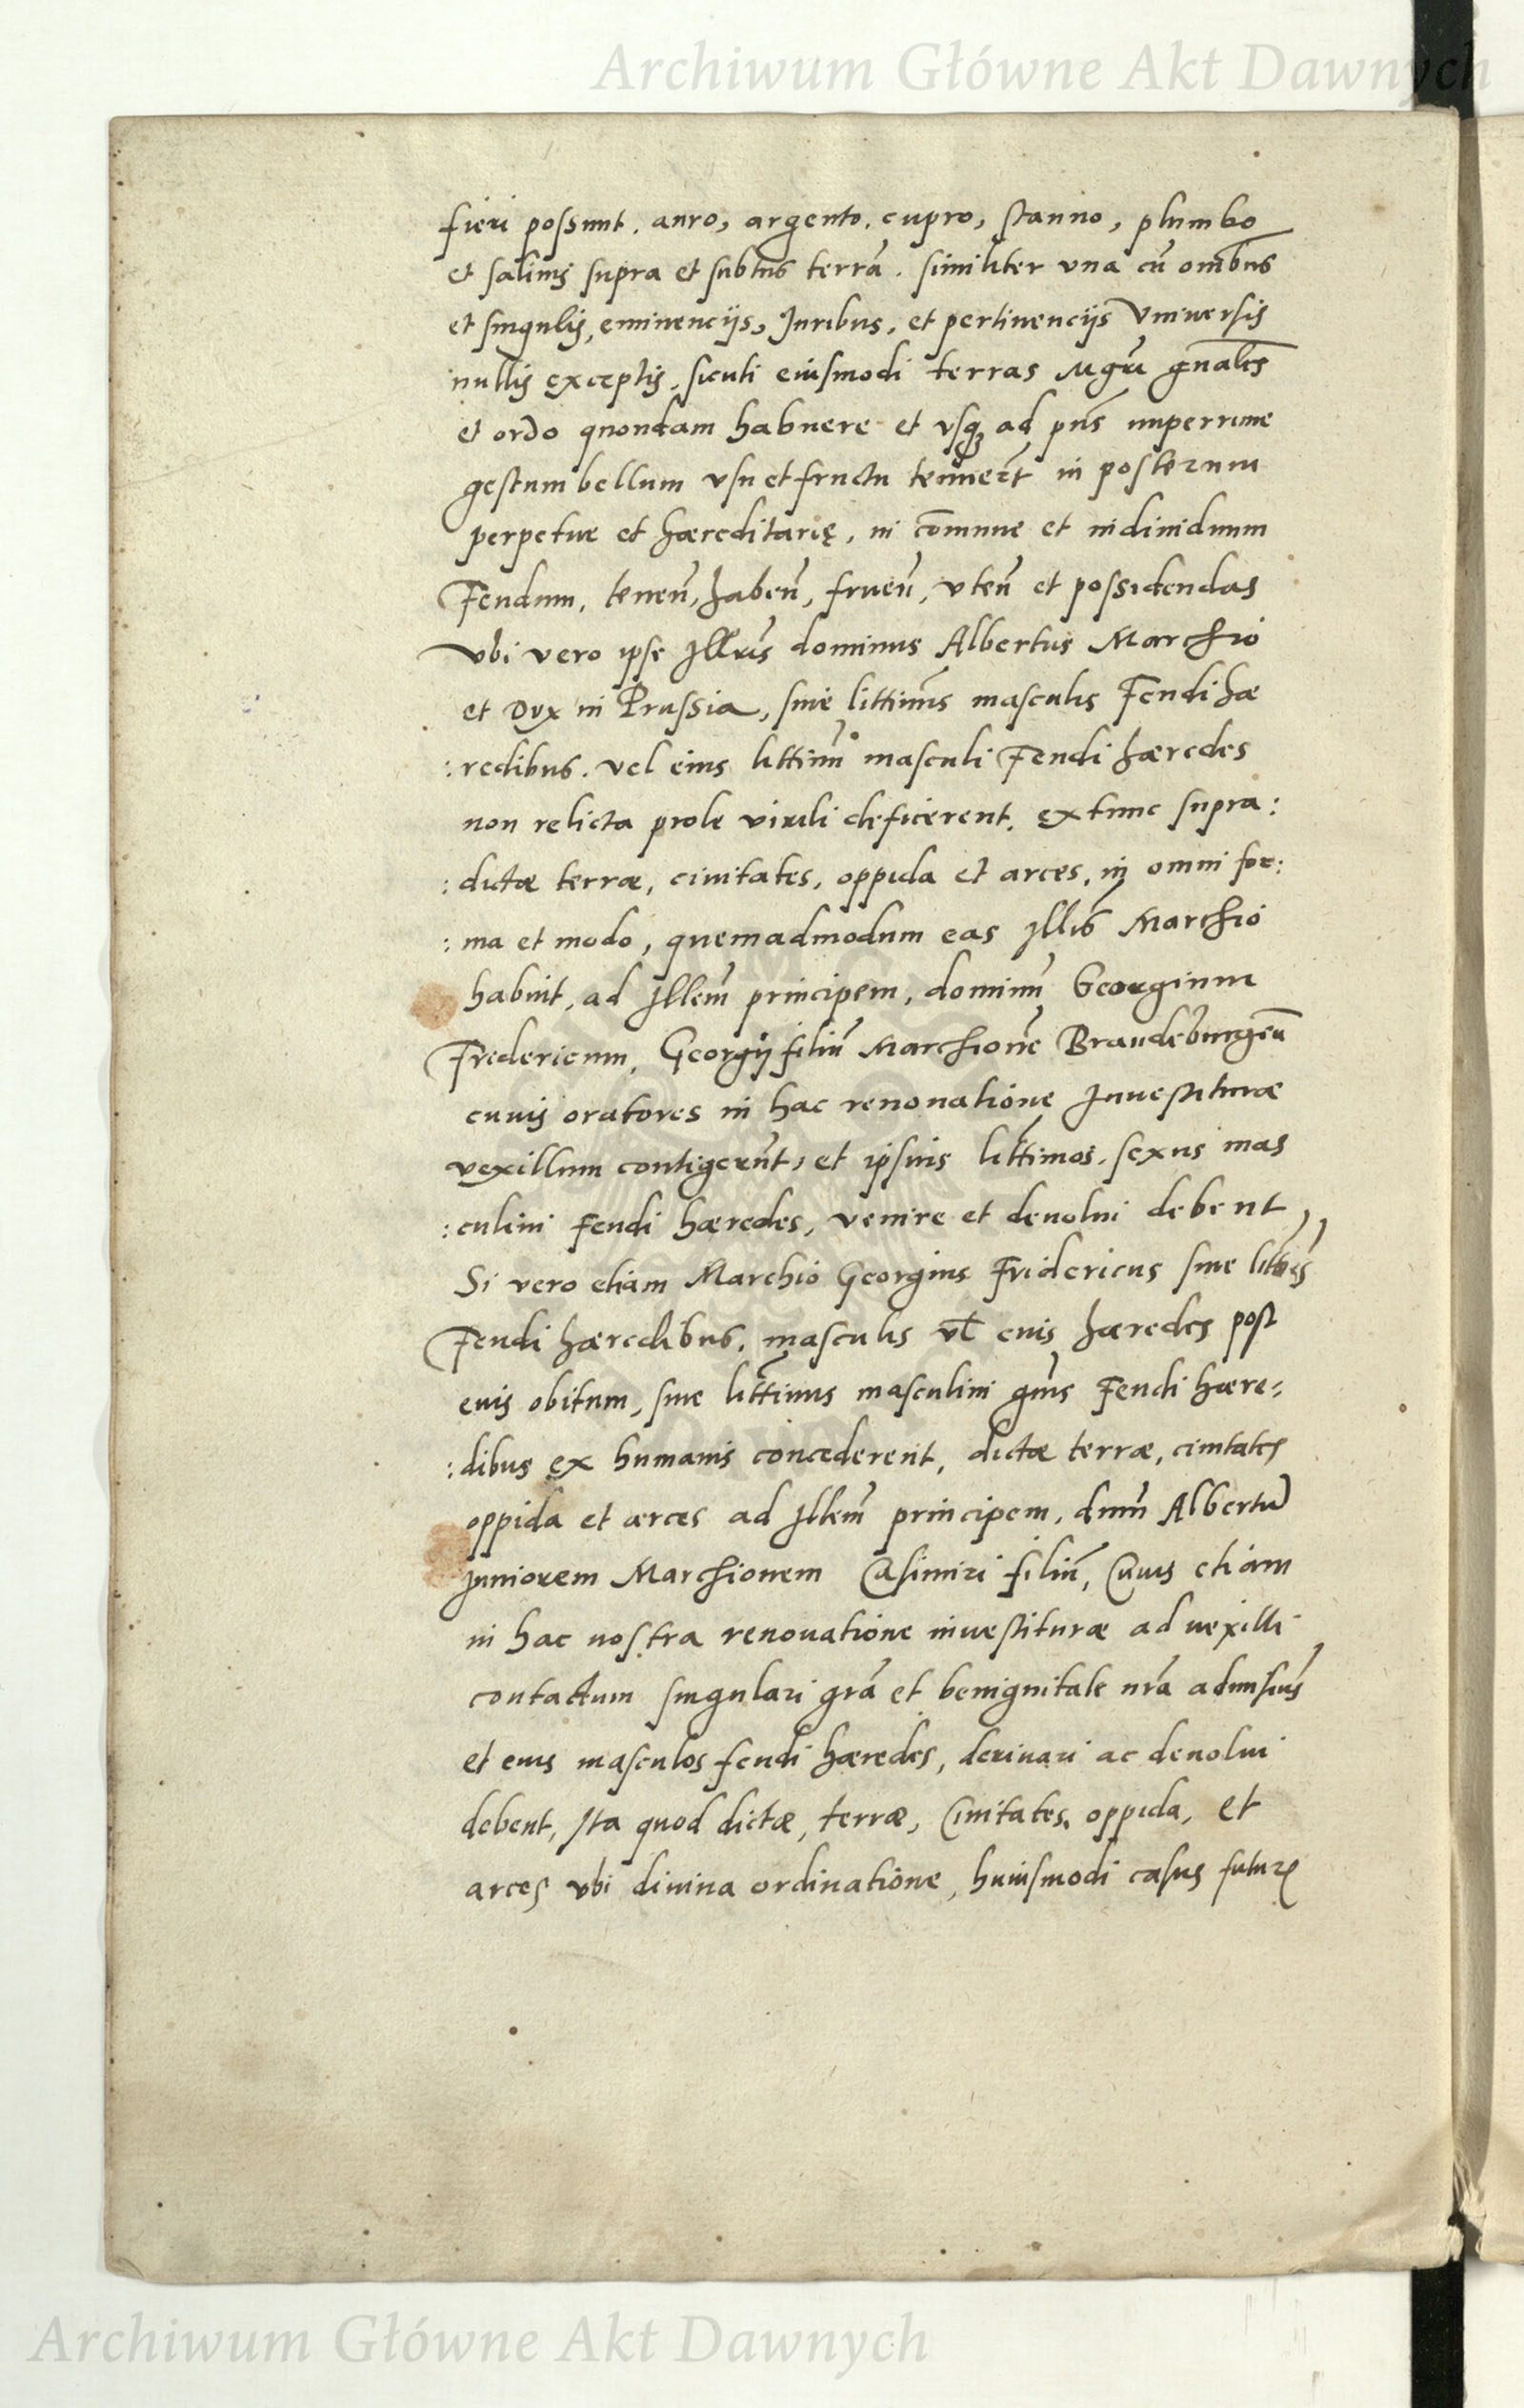 Archiwum Główne Akt Dawnych
fieri possunt. auro, argento. cupro, stanno, plumbo
et salinis supra et subtus terrā. similiter vna cū omībus
et singulis, eminencijs, Juribus, et pertinencijs Vniuersis
nullis exceptis, sicuti eiusmodi terras Mgrī gn̄ales
et ordo quondam habuere et vsq; ad pn̄s nuperrime
gestum bellum vsu et fructu tenuert̄ in posterum
perpetue et hæreditarię, in com̄une et indiuiduum
Feudum, tenen̄, haben̄, fruen̄, vten̄ et possidendas
Vbi vero ipse Illrīs dominus Albertus Marchio
et Dvx in Prussia, siue littimīs masculis Feudi hæ
: redibus. vel eius littimī masculi Feudi hæredes
non relicta prole virili deficerent. extunc supra :
: dictæ terræ, ciuitates, oppida et arces, in omni for:
: ma et modo, quemadmodum eas Illīs Marchio
habuit, ad Illem̄ principem, dominū Georgium
Fredericum, Georgij filiū Marchionē Brandēburgeñ
cuius oratores in hac renouatione Inuestituræ
vexillum contigerūt, et ipsius littīmos, sexus mas
: culini feudi hæredes, venire et deuolui debent,
Si vero etiam Marchio Georgius Fridericus siue littīs
Feudi hæredibus. masculis vl̄ euis hæredes post
euis obitum, siue littīmis masculini gn̄is Feudi hære:
: dibus ex humanis concederent, dictæ terræ, ciuitates
oppida et arces ad Illem̄ principem, dnū̄ Albertū
Juniorem Marchionem Casimiri filiū, Cuius etiam
in hac nostra renouatione inuestituræ ad uexilli
contactum singulari grā et benignitate nrā admisim̄s
et euis masculos feudi hæredes, deriuari ac deuolui
debent, Ita quod dictæ, terræ, Ciuitates, oppida, et
arces vbi diuina ordinatione, huiusmodi casus futur
Archiwum Główne Akt Dawnych